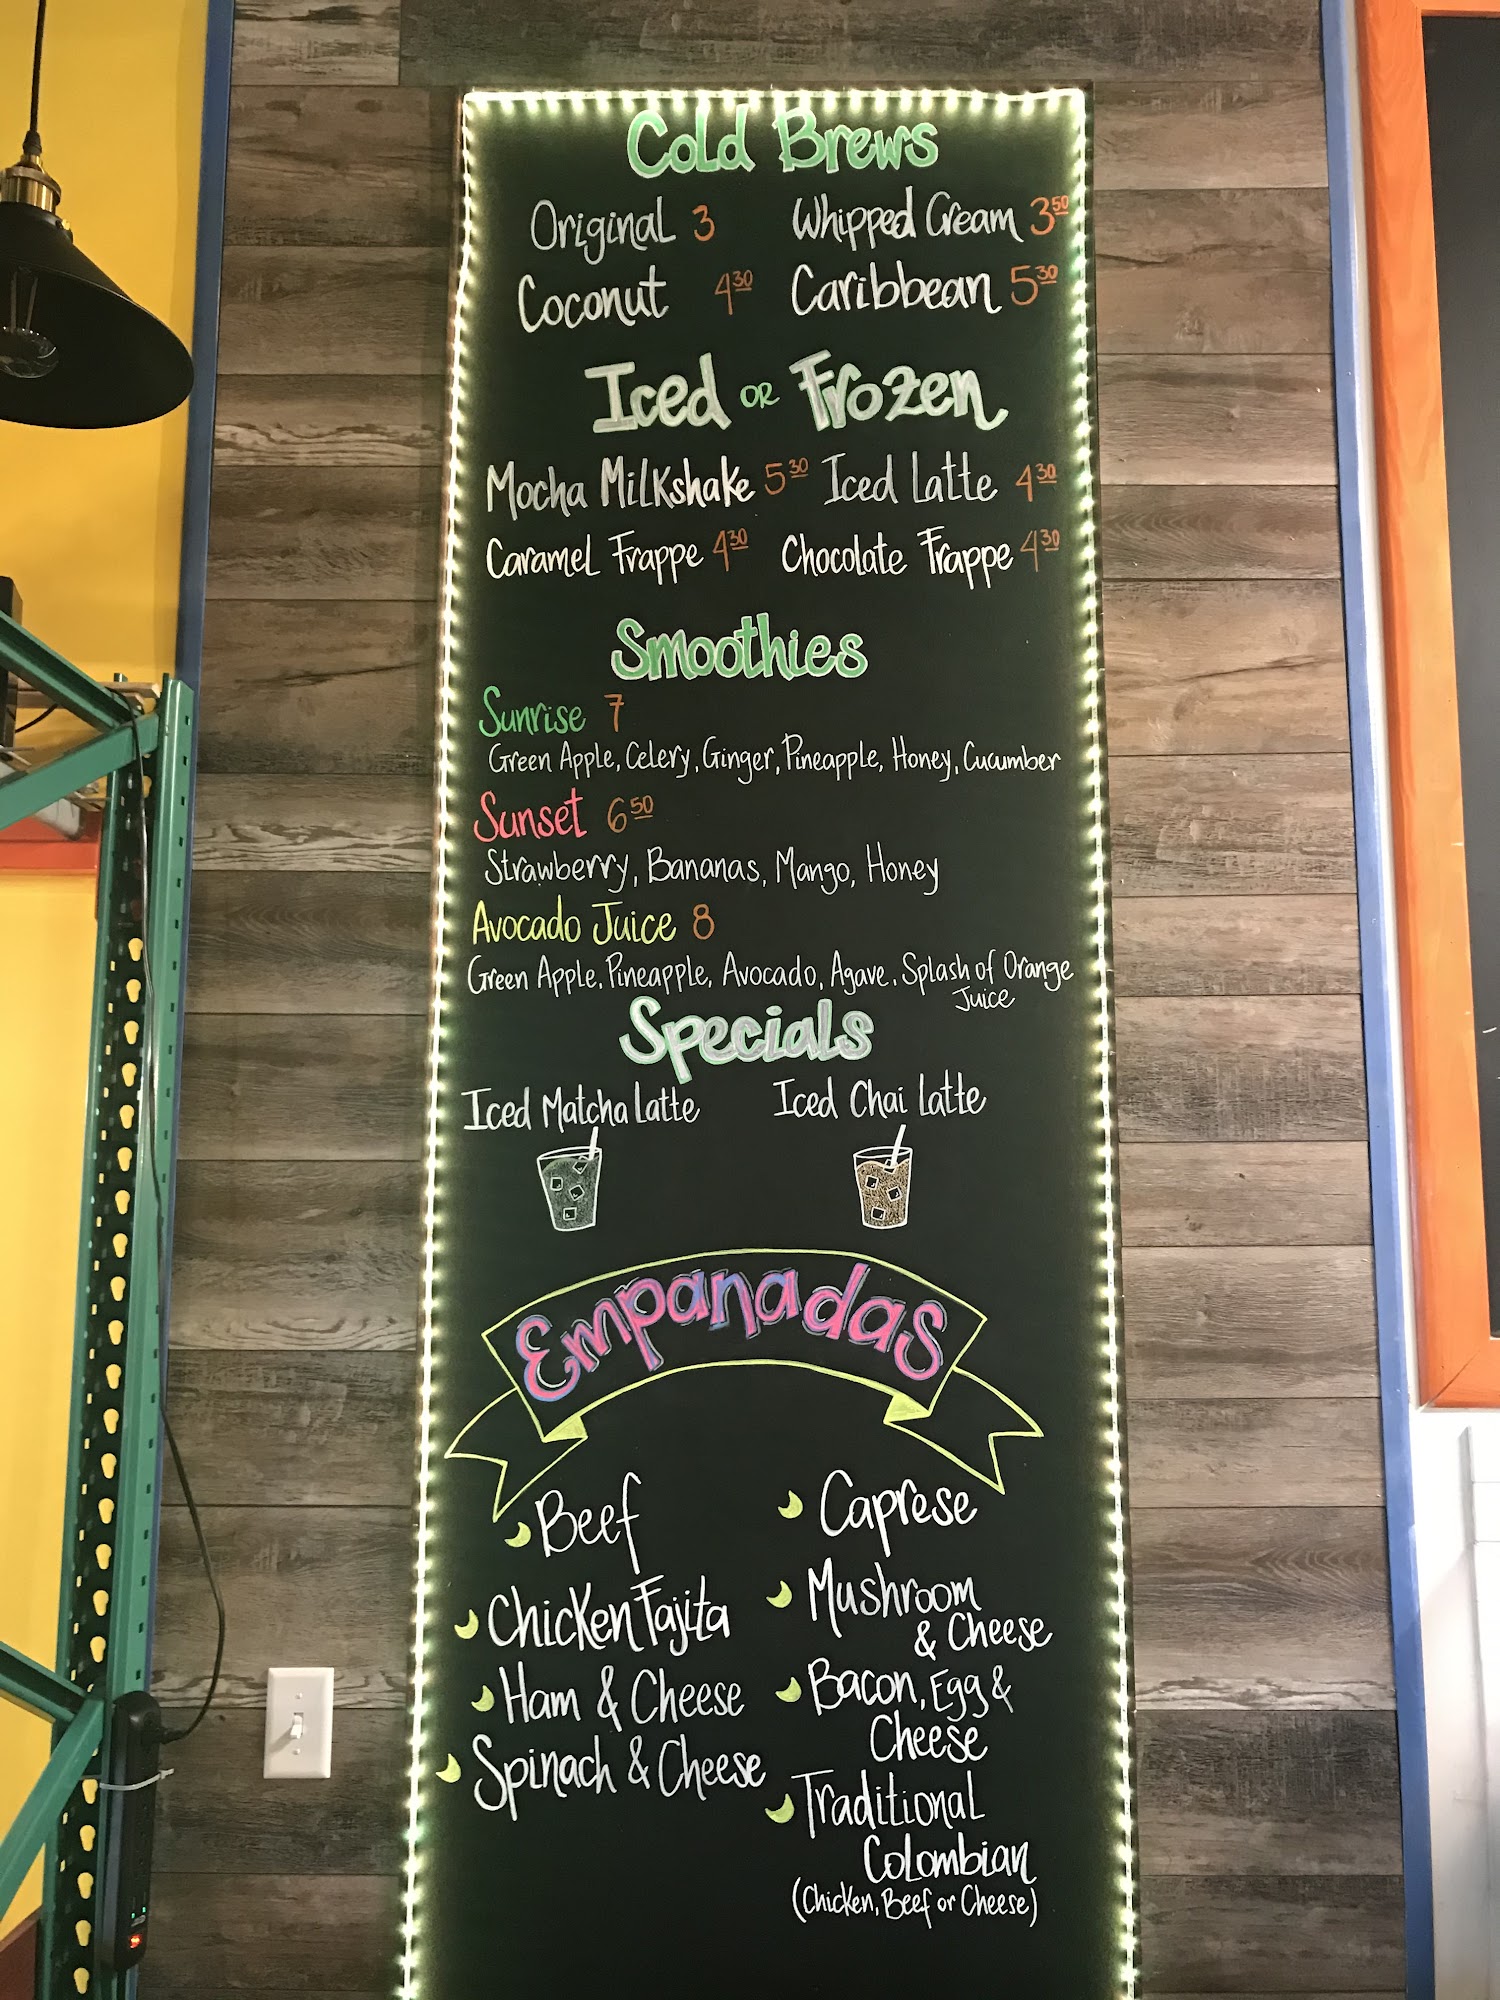 Cold Brews
Original 3 Whipped Cream 3 50
Coconut 4 30 Caribbean 5 30
Iced or Frozen
Mocha Milkshake 5 30 Iced Latte 4 30
Caramel Frappe 4 30 Chocolate Frappe 4 30
Smoothies
Sunrise 7
Green Apple, Celery, Ginger, Pineapple, Honey, Cucumber
Sunset 6 50
Strawberry, Bananas, Mango, Honey
Avocado Juice 8
Green Apple, Pineapple, Avocado, Agave, Splash of Orange
Juice
Specials
Iced Matcha Latte Iced Chai Latte
Empanadas
Beef
Chicken Fajita
Ham & Cheese
Spinach & Cheese
Caprese
Mushroom
& Cheese
Bacon, Egg &
Cheese
Traditional
Colombian
(Chicken, Beef or Cheese)